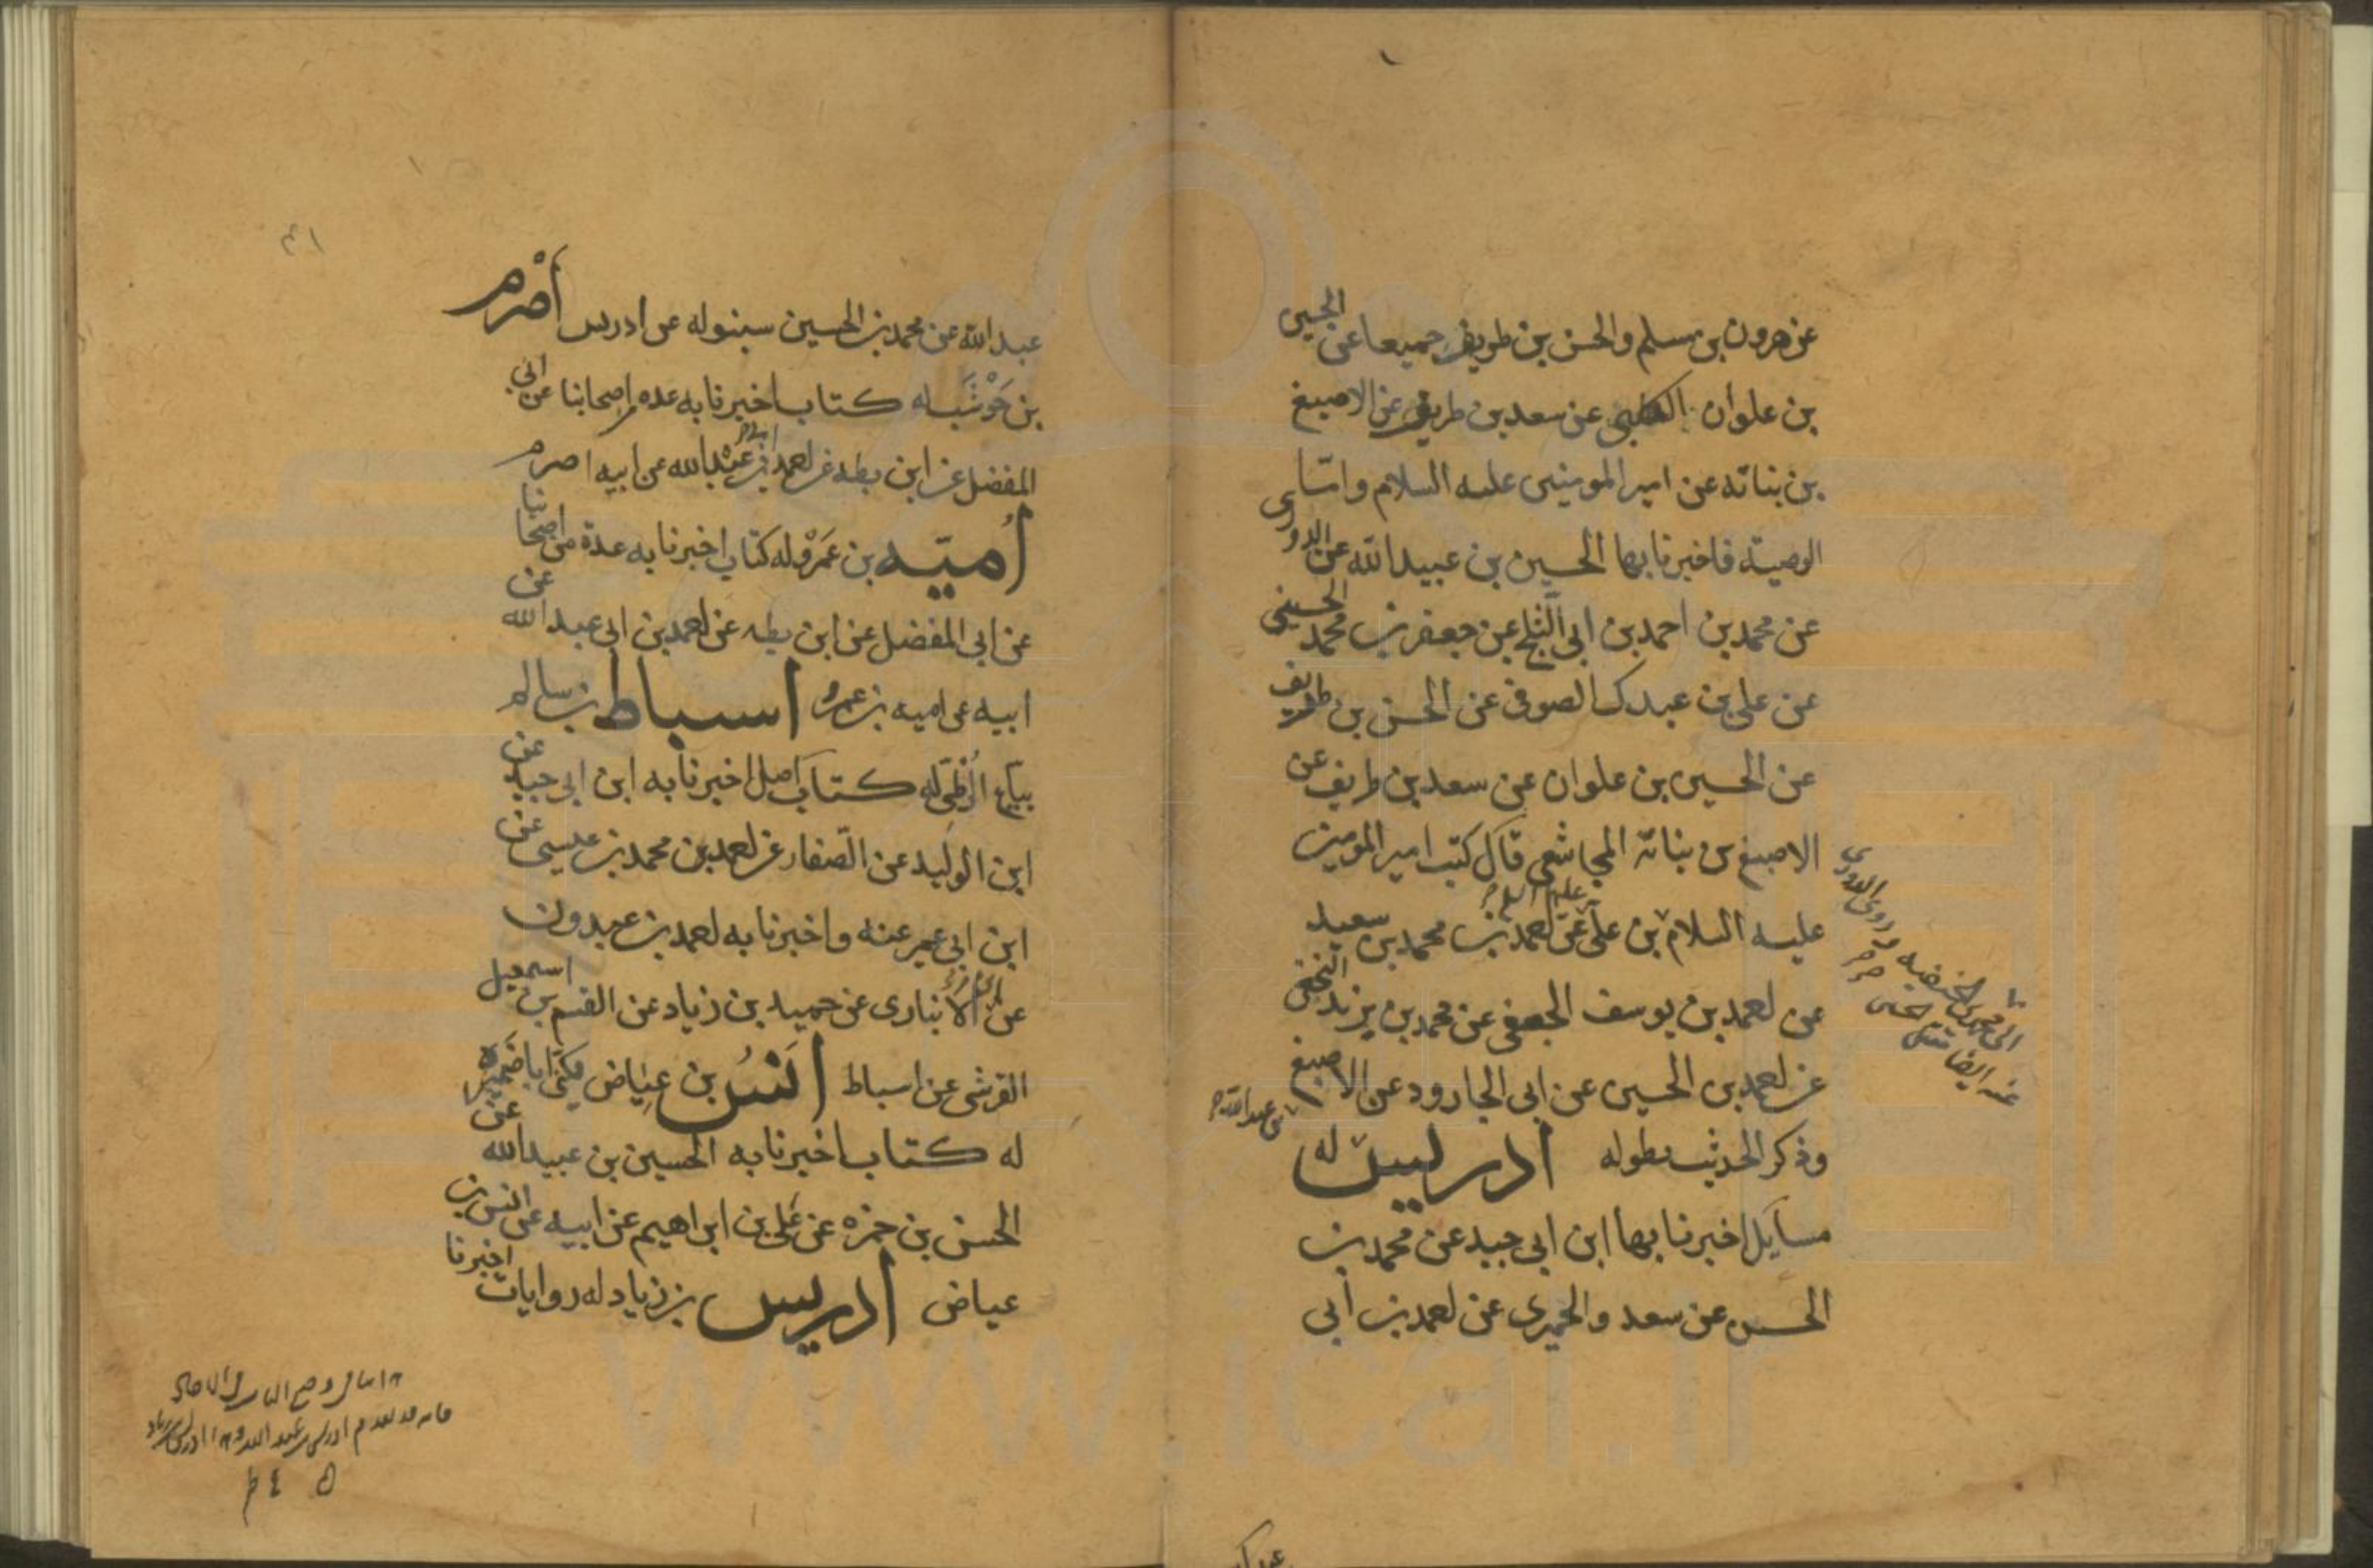 عن هرون بن مسلم والحسن بن طريف جميعا عن الحسين
بن علوان الكلبي عن سعد بن طريف عن الاصبغ
بن نباته عن امير المومنين عليه السلام وامّا
الوصيّة فاخبرنا بها الحسين بن عبيد الله عن الدوري
عن محمد بن احمد بن ابي الثلج عن جعفر بن محمد الحسيني
عن علي بن عبدك الصوفي عن الحسن بن طريف
عن الحسين بن علوان عن سعد بن طريف عن
الاصبغ بن نباتة المجاشعي قال كتب امير المومنين
عليه السلام بن علي عن احمد بن محمد بن سعيد
عليه السلام
عن احمد بن يوسف الجعفي عن محمد بن يزيد النخعي
عن احمد بن الحسين عن ابي الجارود عن الاصبغ
وذكر الحديث بطوله ادريس له
بن عبد الله
مسايل اخبرنا بها ابن ابي جيد عن محمد بن
الحسن عن سعد والحميري عن احمد بن ابي
الى محمد بن الحنفيه وروى الدوري
عنه ايضا مقتل الحسين
٤١
عبد الله عن محمد بن الحسين سينوله عن ادريس أصْرم
بن حَوْشَب له كتاب اخبرنا به عدة من اصحابنا عن ابي
المفضل عن ابن بطه عن احمد بن عبد الله عن ابيه اصرم
أُميّة بن عَمْرو له كتاب اخبرنا به عدة من اصحابنا
عن ابي المفضل عن ابن بطه عن احمد بن ابي عبد الله عن
ابيه عن اميه بن عمرو اسباط بن سالم
بيّاع الزُّطّي له كتاب اصل اخبرنا به ابن ابي جيد عن
ابن الوليد عن الصّفار عن احمد بن محمد بن عيسى عن
ابن ابي عمير عنه واخبرنا به احمد بن عبدون
عن الانباري عن حميد بن زياد عن القسم بن اسمعيل
القرشي عن اسباط انَسُ بن عياض يكنّى ابا ضَمْرة
له كتاب اخبرنا به الحسين بن عبيد الله عن
الحسن بن حمزه عن علي بن ابراهيم عن ابيه عن انس بن
عياض ادريس بن زياد له روايات اخبرنا